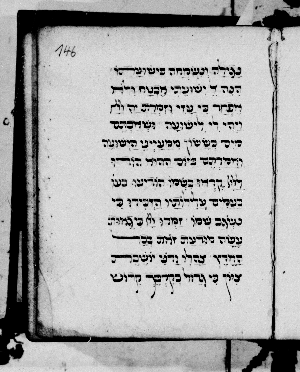 146
נגילה ונשמחה בישועתו
הנה ישועתי אבטח ולא
אפחד כי עזי וזמרת יה
ויהי לי לישועה ושאבתם
מים בששון ממעייני הישועה
ואמרתם ביום ההוא הודו
קראו בשמו הודיעו בע
בעמים עלילותיו הזכירו כי
נשגב שמו זמרו כי גאות
עשה מודעת זאת בכל
הארץ צהלי ורני יושבת
ציון כי גדול בקרבך קדוש